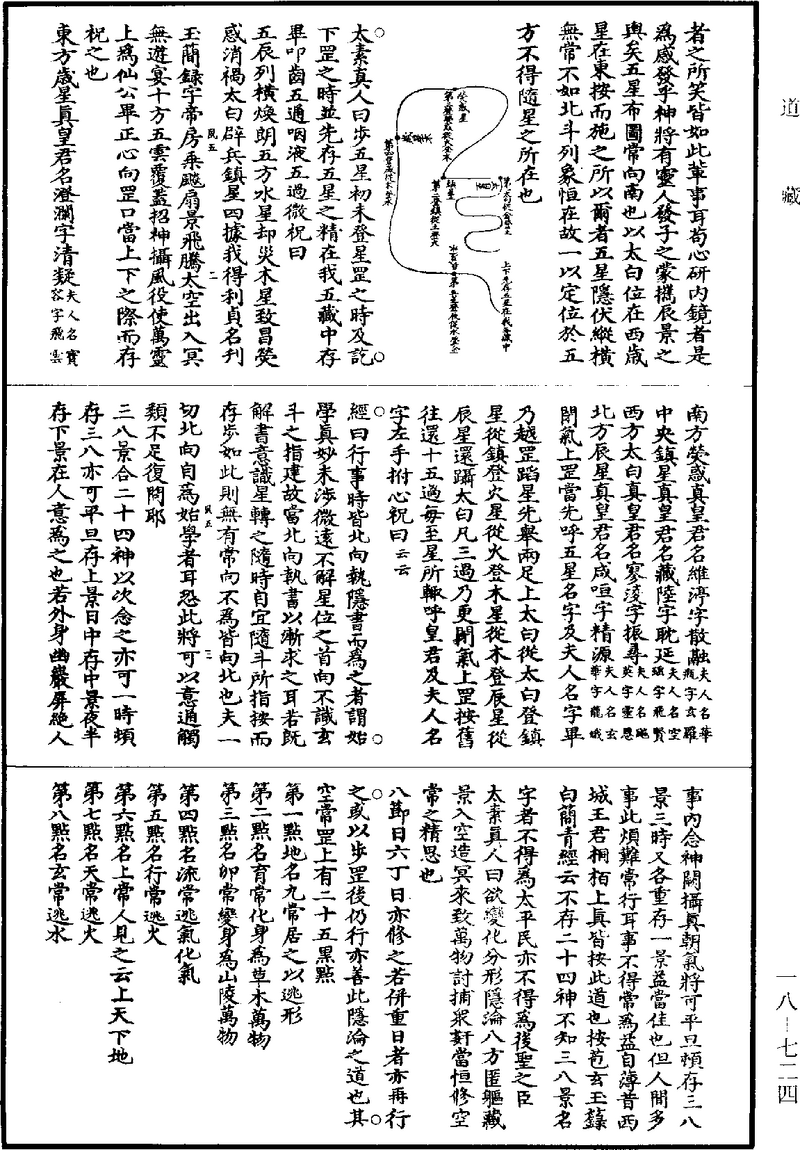 道藏
者之所笑皆如此輩事耳苟心研内鏡者是
爲感發乎神將有靈人發子之蒙攜辰景之
輿矣五星布圖常向南也以太白位在西歲
星在東按而施之所以爾者五星隱伏縱橫
無常不如北斗列象恒在故一以定位於五
方不得隨星之所在也
太素真人曰步五星初未登星罡之時及訖
下罡之時並先存五星之精在我五藏中存
畢叩齒五通咽液五過微祝曰
五辰列橫煥朗五方水星却災木星致昌熒
惑消禍太白辟兵鎮星四據我得利貞名刊
玉簡錄字帝房乘飈扇景飛騰太空出入冥
無遊宴十方五雲覆蓋招神攝風役使萬靈
上爲仙公畢正心向罡口當上下之際而存
祝之也
東方歲星真皇君名澄瀾字清凝夫人名寶容字飛雲
南方熒惑真皇君名維渟字散融夫人名華瓶字玄羅
中央鎮星真皇君名藏睦字耽延夫人名空瑤字飛賢
西方太白真皇君名寥淩字振尋夫人名飈英字靈恩
北方辰星真皇君名咸喧字精源夫人名玄華字龍娥
閉氣上罡當先呼五星名字及夫人名字畢
乃越罡蹈星先舉兩足上太白從太白登鎮
星從鎮登火星從火登木星從木登辰星從
辰星還躡太白凡三過乃更閉氣上罡按舊
往還十五過每至星所輒呼皇君及夫人名
字左手拊心祝曰云云
經曰行事時皆北向執隱書而爲之者謂始
學真妙未涉微遠不解星位之首向不識玄
斗之指建故當北向執書以漸求之耳若既
解書意識星轉之隨時自宜隨斗所指按而
存步如此則無有常向不爲皆向北也夫一
切北向自爲始學者耳恐此將可以意通觸
類不足復問耶
三八景合二十四神以次念之亦可一時頓
存三八亦可平旦存上景日中存中景夜半
存下景在人意爲之也若外身幽巖屏絶人
事内念神關攝真朝氣將可平旦頓存三八
景三時又各重存一景益當佳也但人間多
事此煩難常行耳事不得常爲益自薄昔西
城王君桐栢上真皆按此道也按苞玄玉籙
白簡青經云不存二十四神不知三八景名
字者不得爲太平民亦不得爲後聖之臣
太素真人曰欲變化分形隱淪八方匿軀藏
景入空造冥來致萬物討捕衆姧當恒修空
常之精思也
八節日六丁日亦修之若併重日者亦再行
之或以步罡後仍行亦善此隱淪之道也其
空常罡上有二十五黑點
第一點地名九常居之以逃形
第二點名育常化身爲草木萬物
第三點名卯常變身爲山陵萬物
第四點名流常逃氣化氣
第五點名行常逃火
第六點名上常人見之云上天下地
第七點名天常逃火
第八點名玄常逃水
一八－七二四